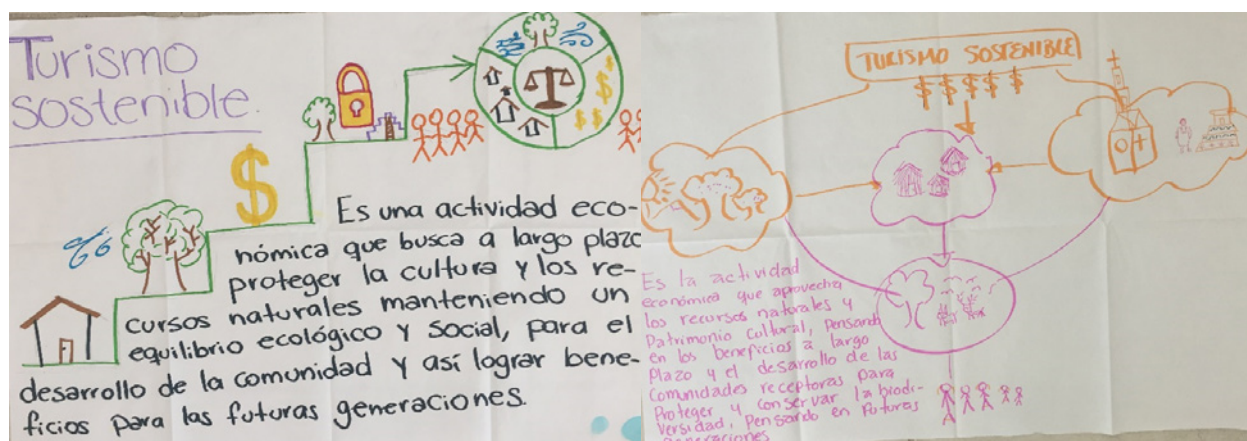 Turismo
sostenible.
Es una actividad eco-
nómica que busca a largo plazo
proteger la cultura y los re-
cursos naturales manteniendo un
equilibrio ecológico y social, para el
desarrollo de la comunidad y así lograr bene-
ficios para las futuras generaciones.
TURISMO SOSTENIBLE
$ $ $ $ $
Es la actividad
económica que aprovecha
los recursos naturales y
Patrimonio Cultural, Pensando
en los beneficios a largo
Plazo y el desarrollo de las
Comunidades receptoras para
Proteger y conservar la biodi-
versidad, Pensando en Futuras
generaciones